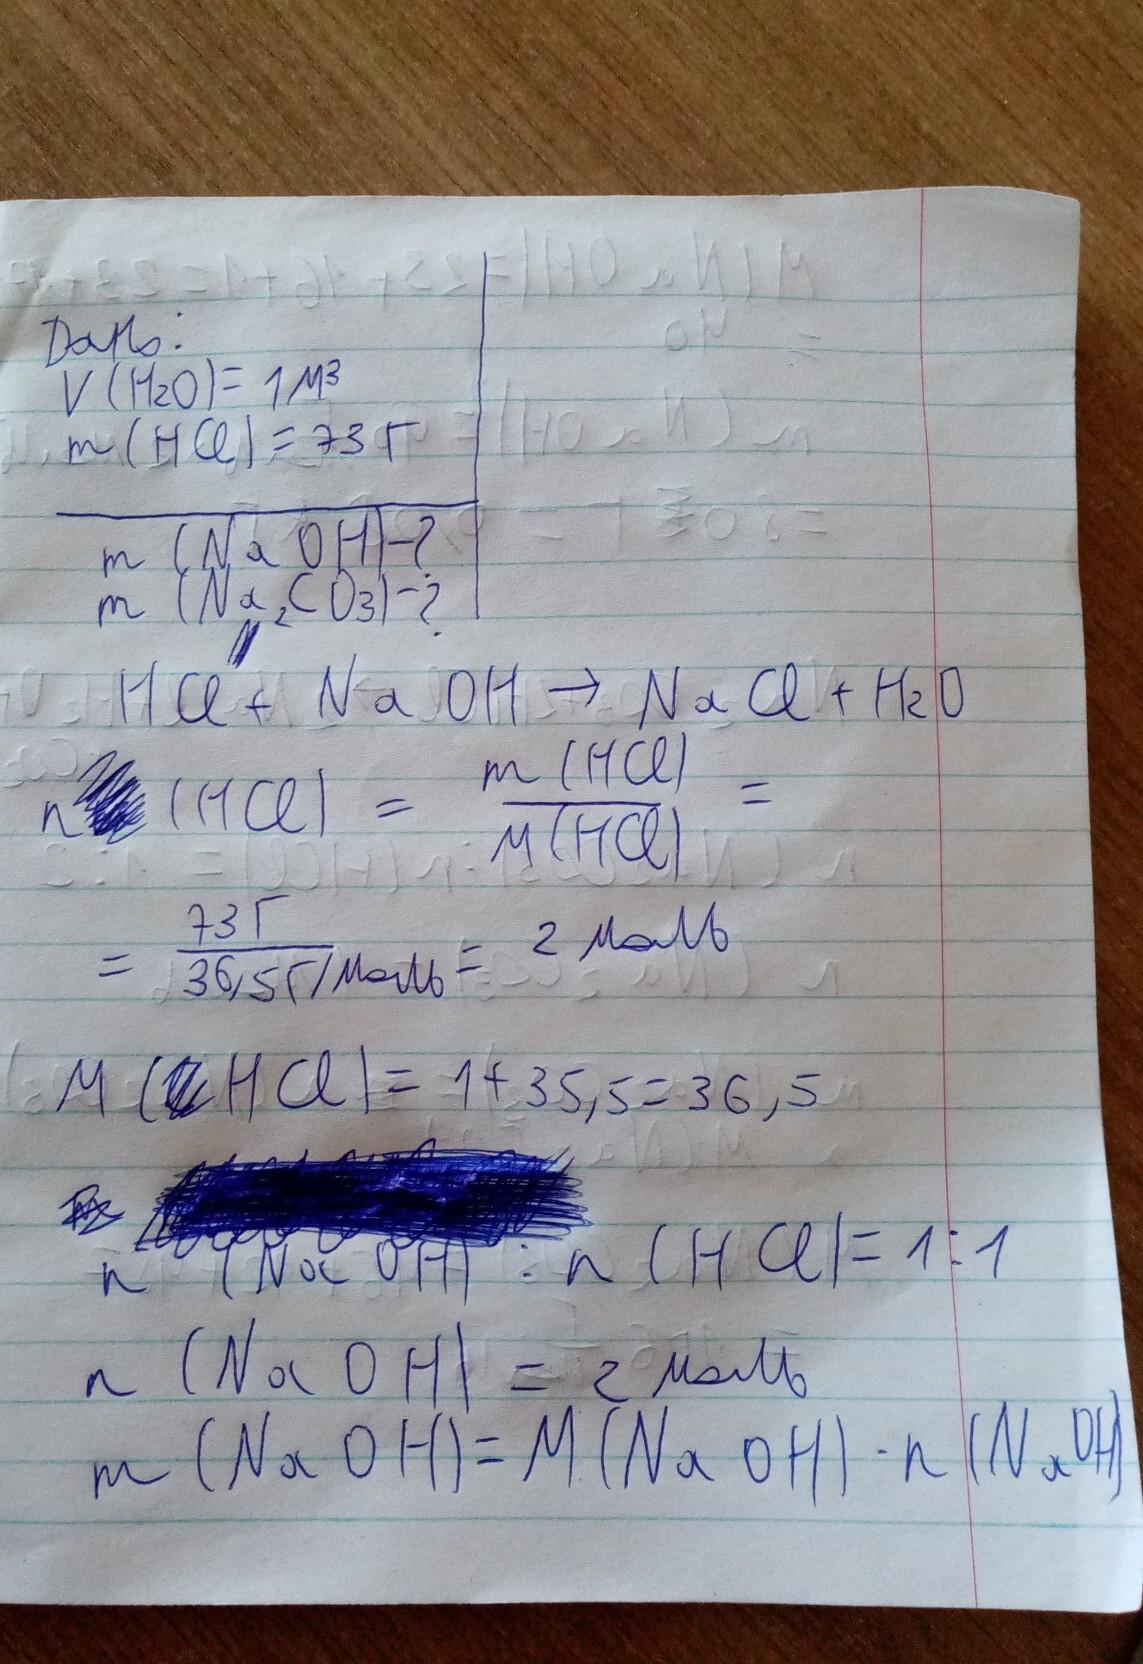 Дано:
V (H2O) = 1 м³
m (HCl) = 73 г
m (NaOH) - ?
m (Na₂CO3) - ?
HCl + NaOH → NaCl + H2O
n (HCl) = m (HCl) / M (HCl) =
= 73 г / 36,5 г/моль = 2 моль
M (HCl) = 1 + 35,5 = 36,5
n (NaOH) : n (HCl) = 1 : 1
n (NaOH) = 2 моль
m (NaOH) = M (NaOH) · n (NaOH)